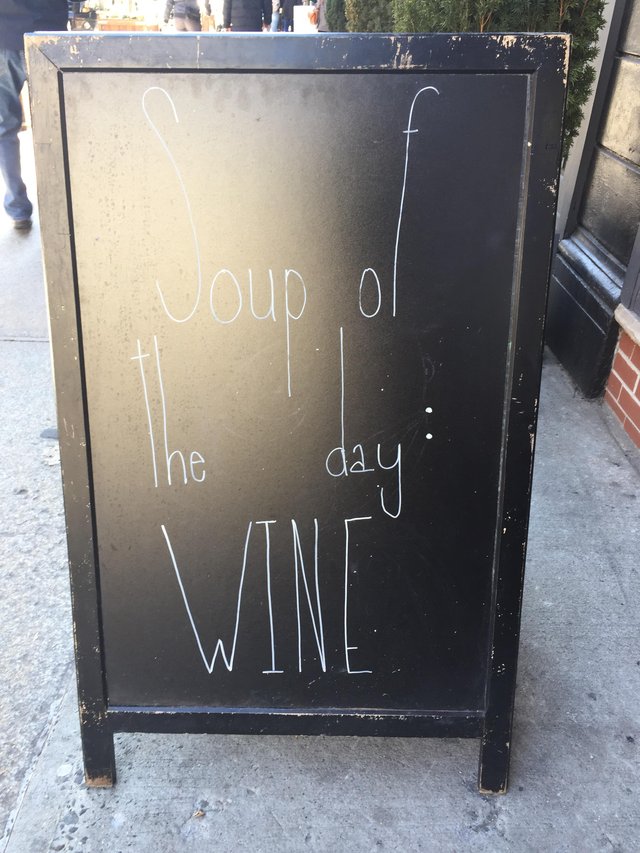 Soup of
the day:
WINE